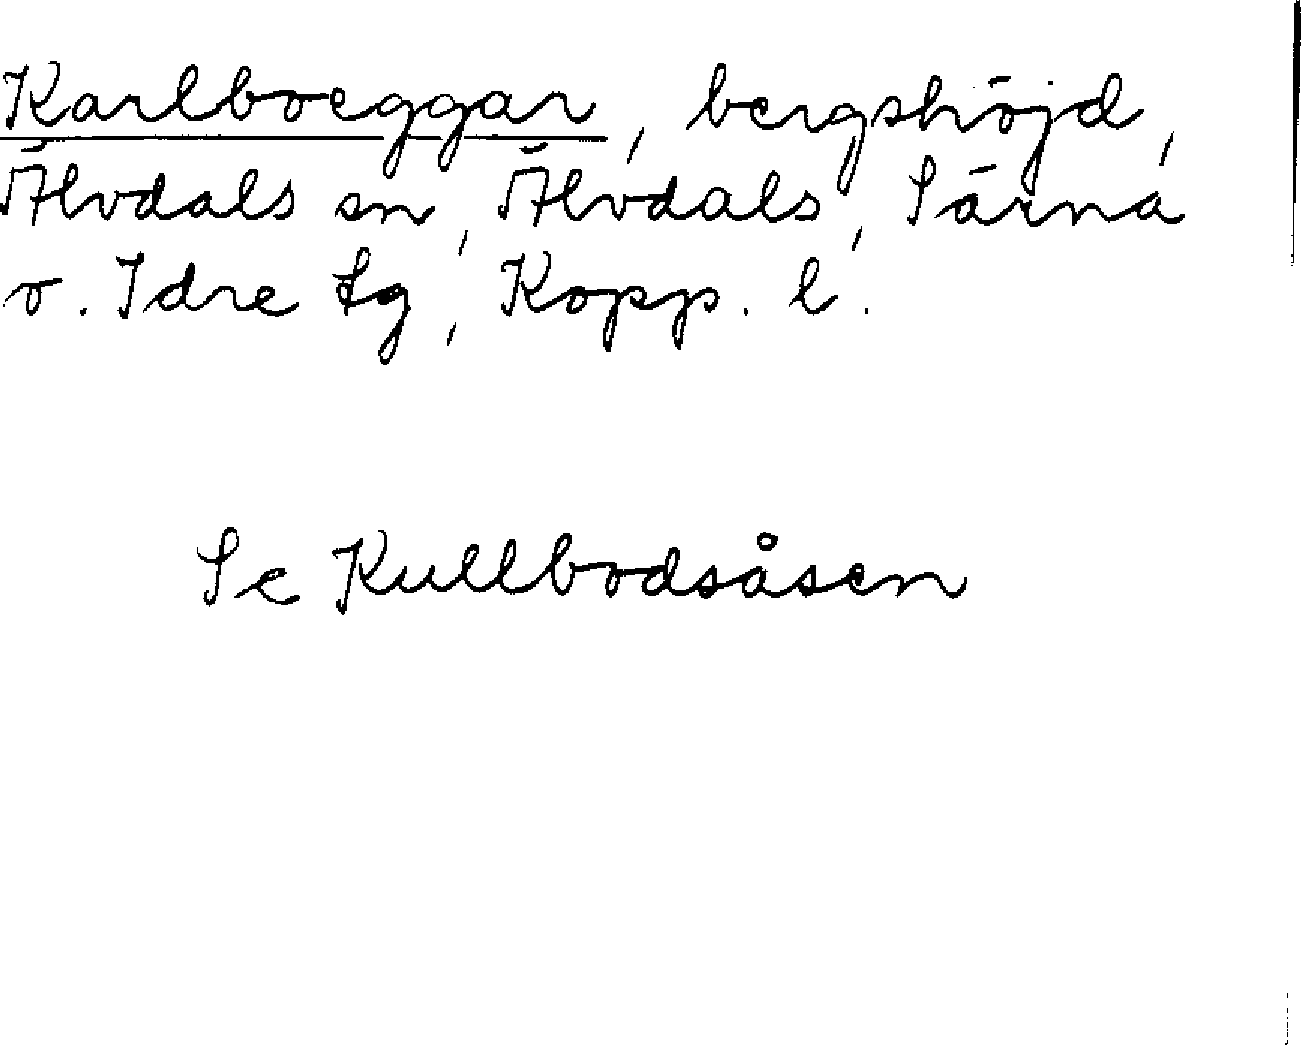 Karlboeggar, bergshöjd,
Älvdals sn, Älvdals, Särna
o. Idre tg, Kopp. l.
Se Kullbodsåsen